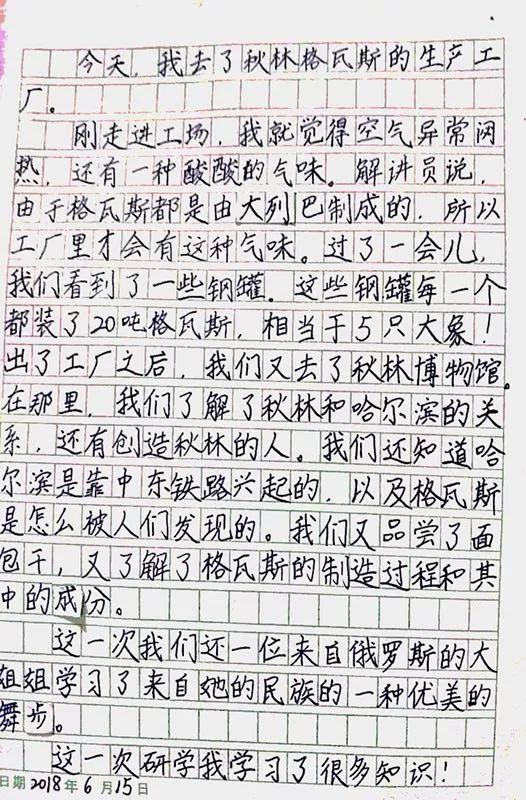 今天，我去了秋林格瓦斯的生产工
厂。
刚走进工场，我就觉得空气异常闷
热，还有一种酸酸的气味。解讲员说，
由于格瓦斯都是由大列巴制成的，所以
工厂里才会有这种气味。过了一会儿，
我们看到了一些钢罐。这些钢罐每一个
都装了20吨格瓦斯，相当于5只大象！
出了工厂之后，我们又去了秋林博物馆。
在那里，我们了解了秋林和哈尔滨的关
系，还有创造秋林的人。我们还知道哈
尔滨是靠中东铁路兴起的，以及格瓦斯
是怎么被人们发现的。我们又品尝了面
包干，又了解了格瓦斯的制造过程和其
中的成份。
这一次我们还一位来自俄罗斯的大
姐姐学习了来自她的民族的一种优美的
舞步。
这一次研学我学习了很多知识！
日期2018年6月15日